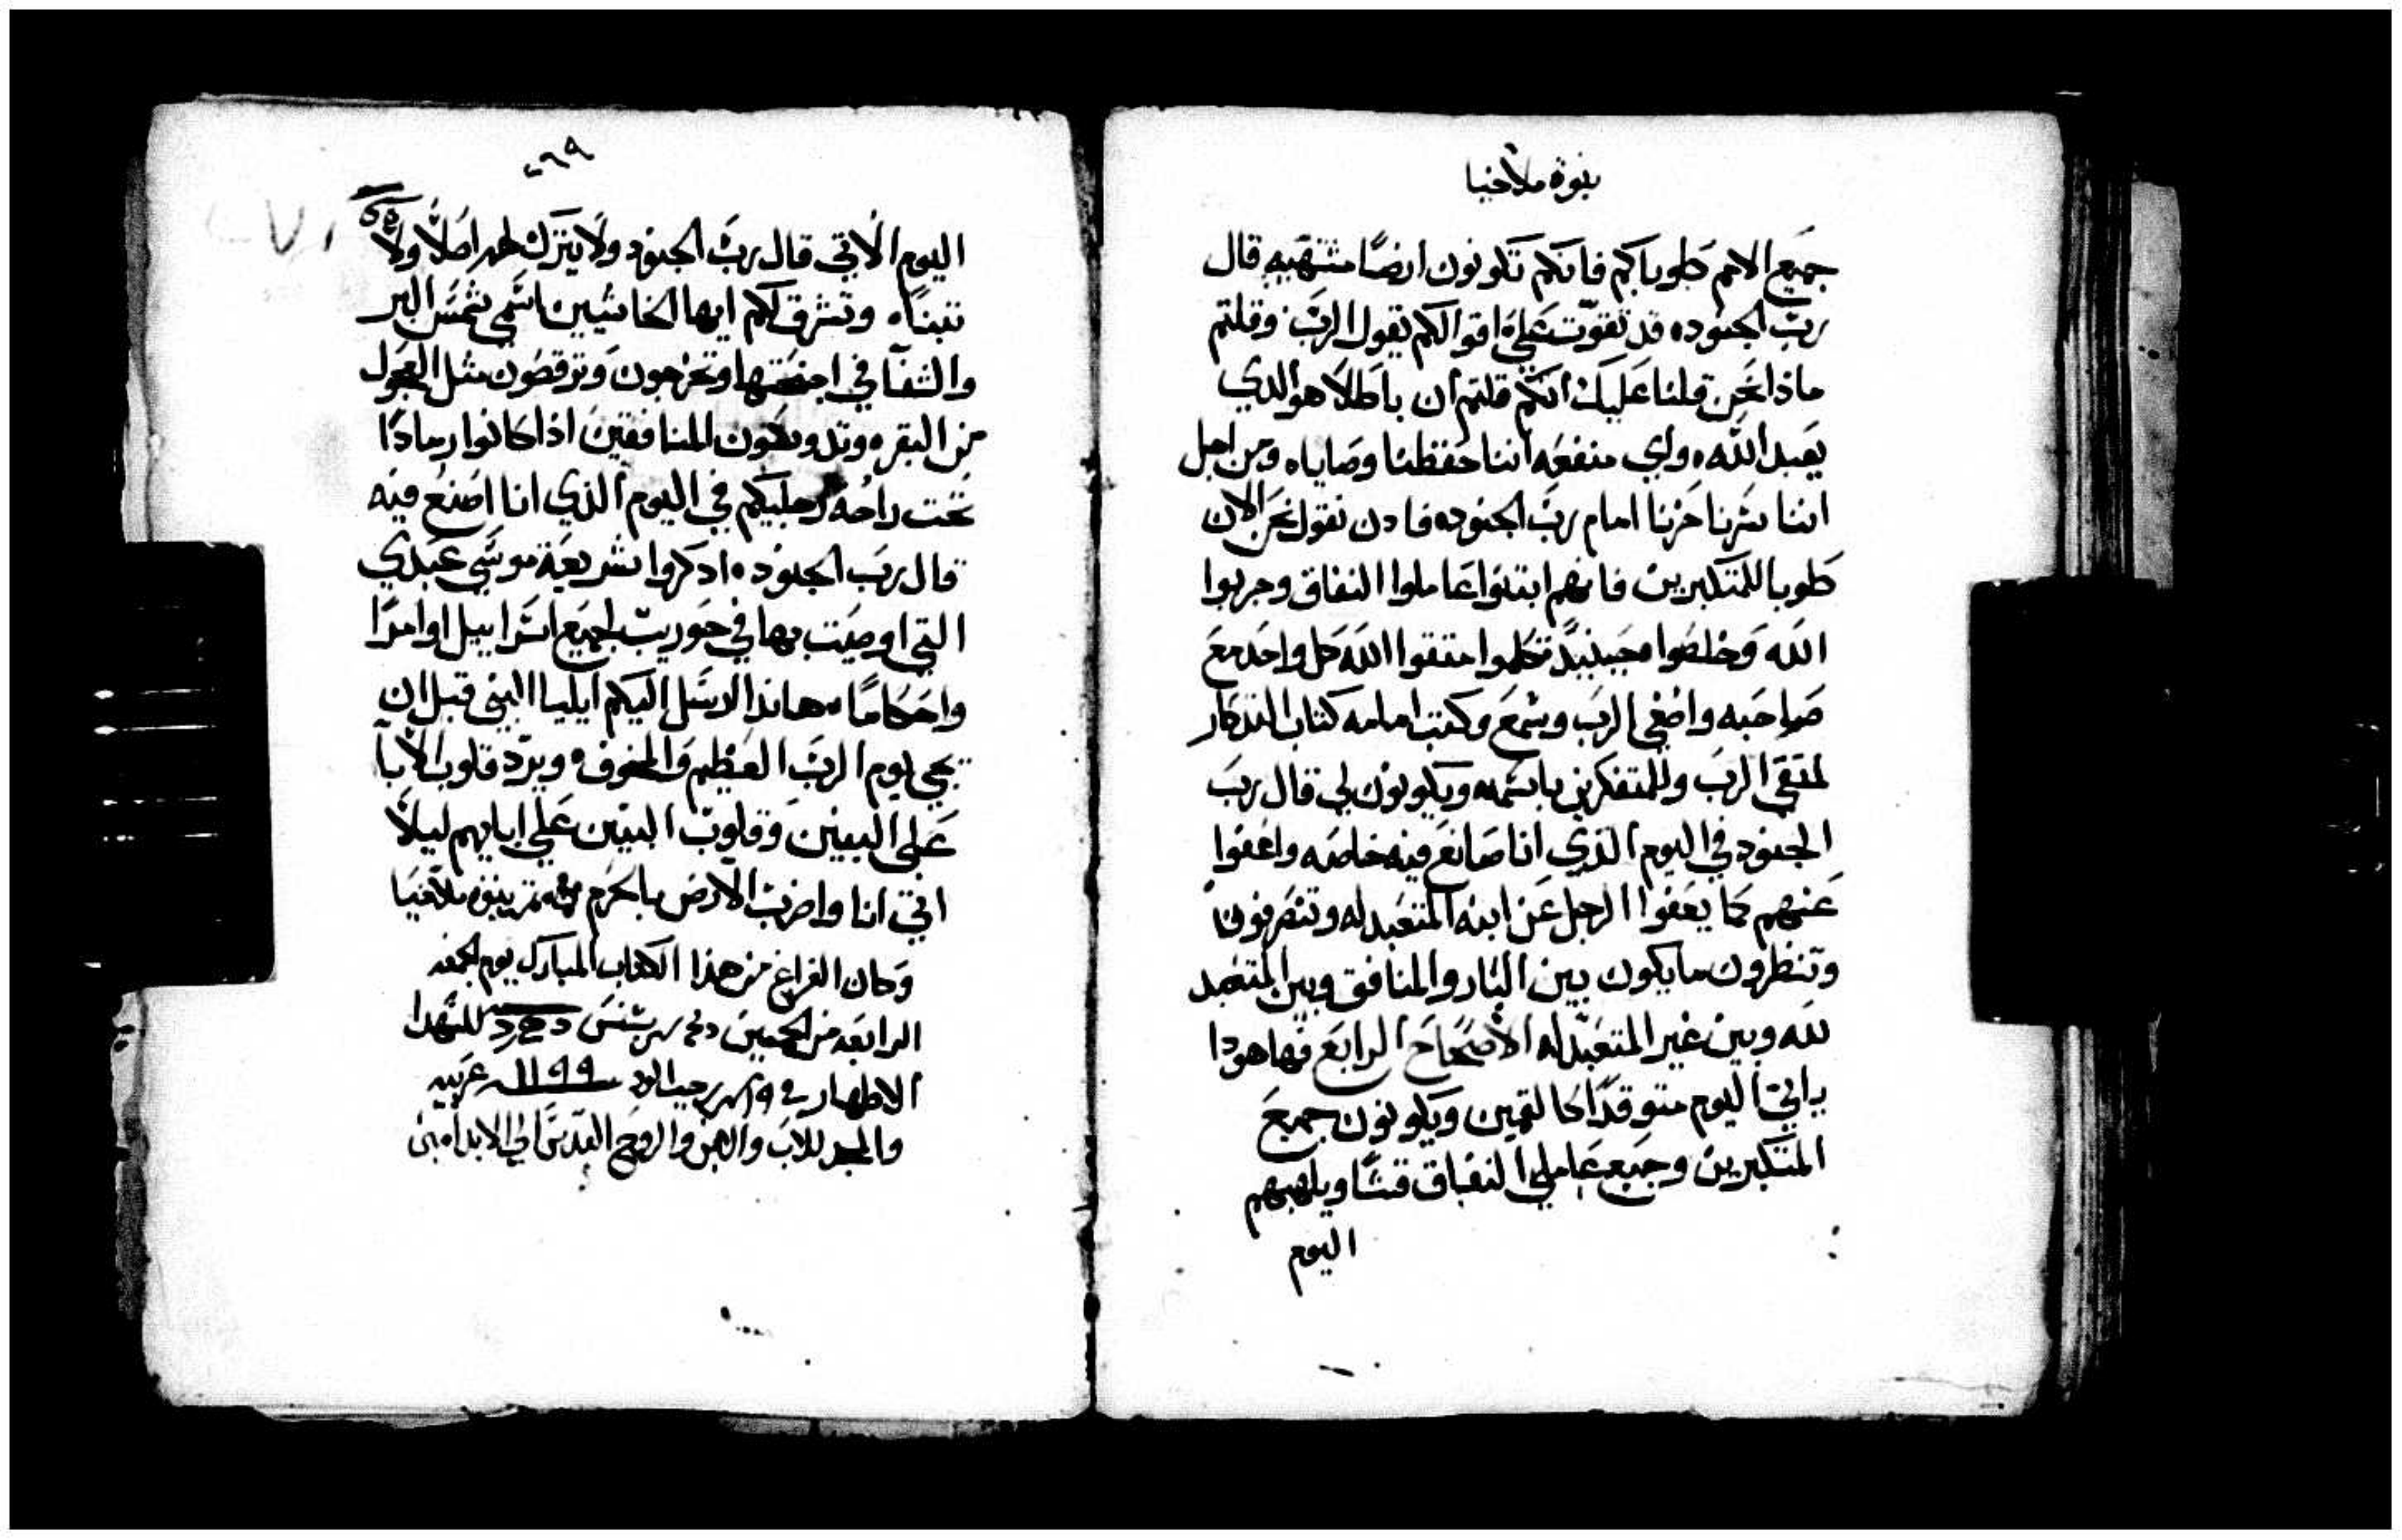 نبوة ملاخيا
جميع الامم طوباكم فانكم تكونون ارضًا مشتهيه قال
ربّ الجنوده قد تقوّت عَليَّ اقوالكم يقول الربّ وقلتم
ماذا نحن قلنا عَليك انكم قلتم ان باطلاً هو الدي
يعبد الله واي منفعه اننا حفظنا وصاياه ومن اجل
اننا سرنا حزنا امام ربّ الجنوده فادن نقول نحن الان
طوبا للمتكبرين فانهم ابتنوا عاملوا النفاق وجربوا
الله وخلصوا حينيدٍ تكلموا متقوا الله كل واحد مع
صاحبه واصغي الرب وسمع وكتب امامه كتاب التدكار
لمتقي الربّ وللمتفكرين باسمه ويكونون لي قال ربّ
الجنود في اليوم الذي انا صانع فيه خاصه واعفوا
عنهم كما يعفوا الرجل عن ابنه المتعبد له وتنصرفون
وتنظرون ما يكون بين البار والمنافق وبين المتعبد
لله وبين غير المتعبد له الاصحاح الرابع فها هودا
ياتي اليوم متوقدًا كالتمين ويكونون جميع
المتكبرين وجميع عاملي النفاق قشًا ويلهبهم
اليوم
٢٦٩
اليوم الاتي قال ربّ الجنود ولا يترك لهم اصلاً ولا
تبنًا وتشرق لكم ايها الخاشيين اسمي شمس البر
والشفآ في اجنحتها وتخرجون وترقصون مثل العجول
من البقره وتدوسون المنافقين اذا كانوا رمادًا
تحت راحه رجليكم في اليوم الذي انا اصنع فيه
قال ربّ الجنود ادكروا شريعة موسي عبدي
التي اوصيت بها في حوريب لجميع اسراييل اوامرًا
واحكامًا هاندا ارسل اليكم ايليا النبي قبل ان
يجي يوم الربّ العظيم والمخوف ويردّ قلوب الابآ
علي البنين وقلوب البنين علي ابايهم ليلاً
اتي انا واضرب الارض بالحرم تمت نبوة ملاخيا
وكان الفراغ من هذا الكتاب المبارك يوم الجمعه
الرابعه من الخمسين شهر بشنس للشهدا
الاطهار في شهر رجب ١١٩٩ عربيه
والمجد للاب والابن والروح القدس الي الابد امين